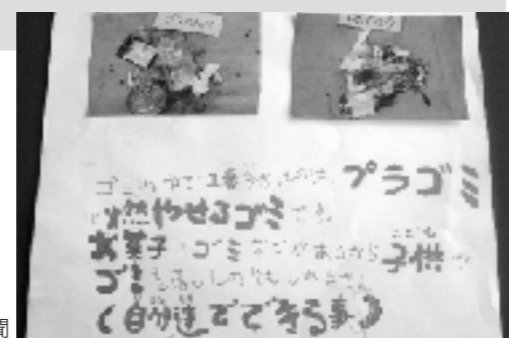 ゴミの中で1番多かったのは、プラゴミ
燃やせるゴミです。
お菓子のゴミなどがあるから子供が
ゴミを落としたのかもしれません。
(自分達でできる事)
聞